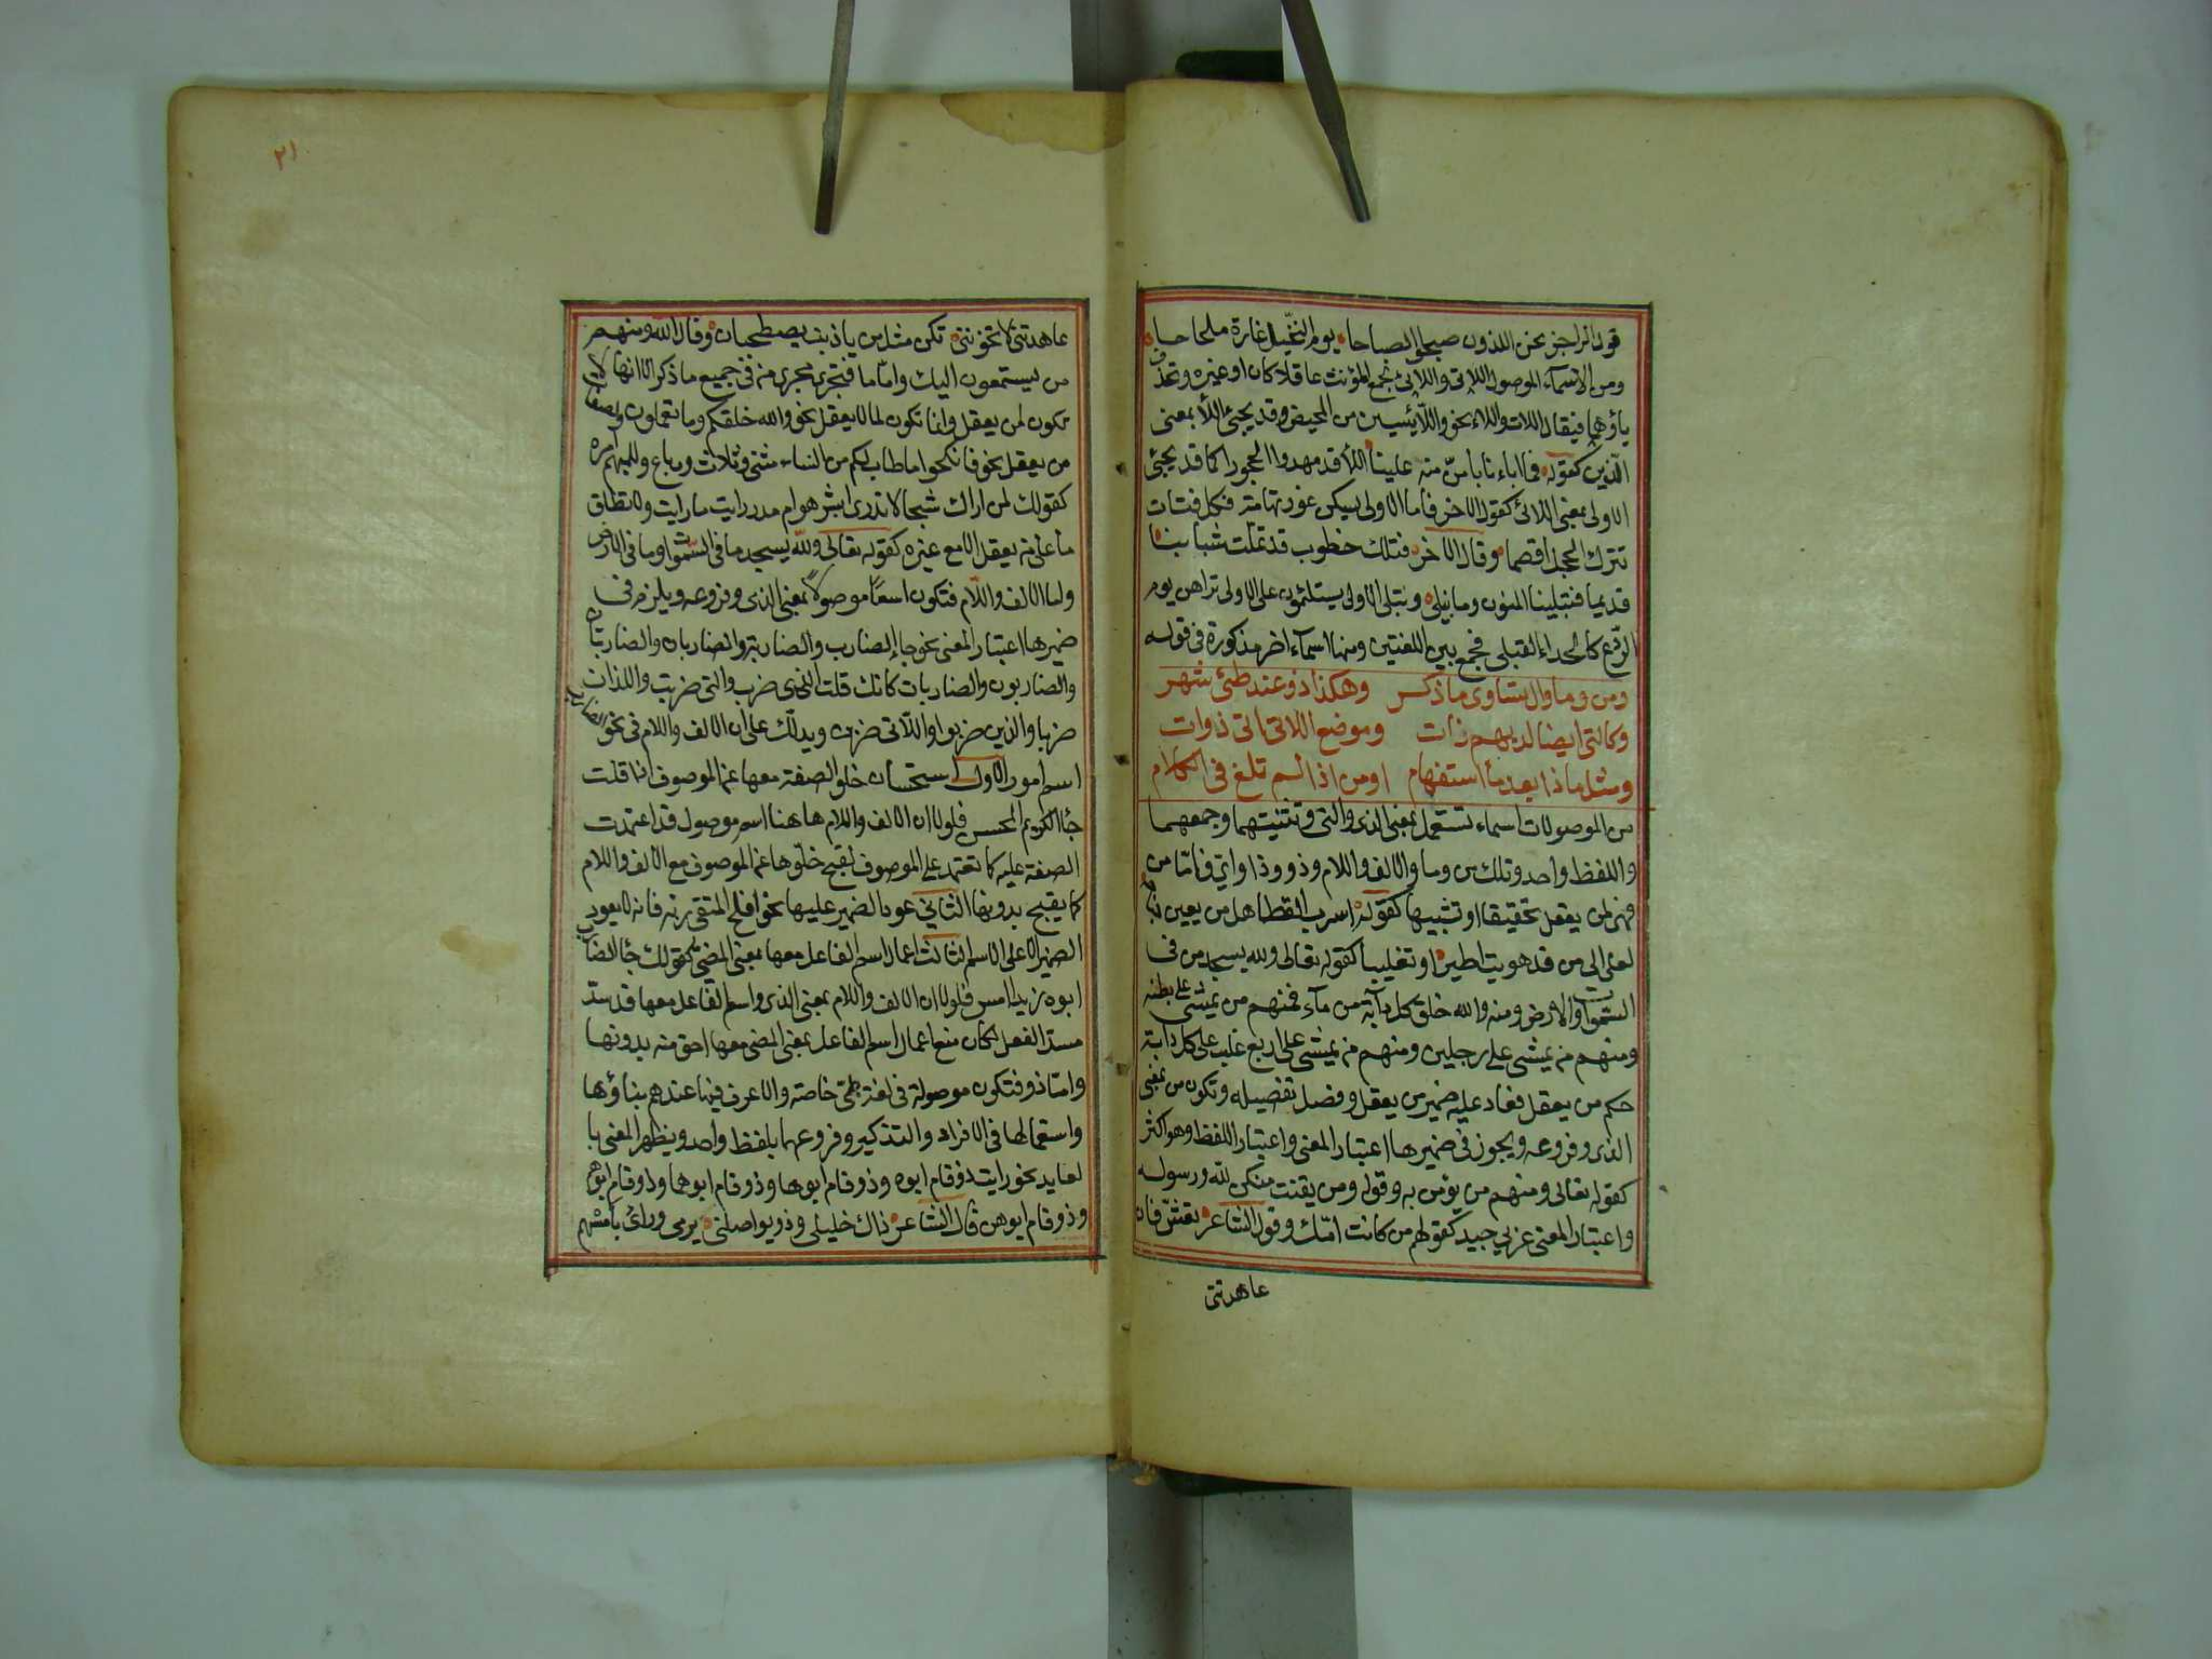 قول الراجز نحن اللذون صبحوا الصباحا يوم النخيل غارة ملحاحا
ومن الاسماء الموصولة اللاتي واللائي لجمع المؤنث عاقلا كان او غيره وتحذف
ياؤهما فيقال اللات واللاء نحو واللآ يئسن من المحيض وقد يجئ اللأ بمعنى
الذين كقوله فما اباءنا بامنّ منه علينا اللأ قد مهدوا الحجورا كما قد يجئ
الاولى بمعنى اللائ كقول الاخر فاما الاولى يسكن غور تهامة فكل فتات
تترك الحجل اقصما وقال الاخر فتلك خطوب قد تملت شبابنا
قديما فتبلينا المنون وما نبلي وتبلي الاولى يستلئمون على الاولى تراهن يوم
الرّوع كالحداء القبلي فجمع بين اللغتين ومنها اسمآء اخر مذكورة في قوله
ومن وما وال تساوي ما ذكر وهكذا ذو عند طئ شهر
وكالتي ايضا لديهم ذات وموضع اللاتي اتى ذوات
ومثل ما ذا بعد ما استفهام اومن اذا لم تلغ في الكلام
من الموصولات اسماء تستعمل بمعنى الذي والتي وتثنيتهما وجمعهما
واللفظ واحد وتلك من وما والالف واللام وذو وذا واي فامّا من
فهي لمن يعقل تحقيقا او تشبيها كقوله اسرب القطا هل من يعير جناحه
لعلي الى من قد هويت اطير او تغليبا كقوله تعالى ولله يسجد من في
السموات والارض ومنه والله خلق كل دآبة من مآء فمنهم من يمشي على بطنه
ومنهم من يمشي على رجلين ومنهم من يمشي على اربع غلب على كل دابة
حكم من يعقل فعاد عليه ضمير من يعقل وفصل تفصيله وتكون من بمعنى
الذي وفروعه ويجوز في ضميرها اعتبار المعنى واعتبار اللفظ وهو اكثر
كقوله تعالى ومنهم من يؤمن به وقوله ومن يقنت منكن لله ورسوله
واعتبار المعنى عربي جيد كقولهم من كانت امّك وقول الشاعر تعشّ فان
عاهدتني
٢١
عاهدتني لا تخونني تكن مثل من يا ذئب يصطحبان وقال الله ومنهم
من يستمعون اليك وامّا ما فتجري مجرى من في جميع ما ذكر الا انها لا
تكون لمن يعقل وانما تكون لما لا يعقل نحو والله خلقكم وما تعملون ولصفات
من يعقل نحو فانكحوا ما طاب لكم من النساء مثنى وثلاث ورباع وللمبهم امره
كقولك لمن اراك شبحا لا تدري ابشر هو ام مدر رايت ما رايت ولا تطلق
ما على من يعقل الا مع غيره كقوله تعالى ولله يسجد ما في السموات وما في الارض
واما الالف واللام فتكون اسمًا موصولاً بمعنى الذي وفروعه ويلزم في
ضميرها اعتبار المعنى نحو جا الضارب والضاربة والضاربان والضاربتان
والضاربون والضاربات كانك قلت الذي ضرب والتي ضربت واللذان
ضربا والذين ضربوا واللاتي ضربن ويدلّك على ان الالف واللام في نحو الضارب
اسم امور الاول استحسان خلو الصفة معها عن الموصوف اذا قلت
جأ الكريم المحسن فلولا ان الالف واللام هاهنا اسم موصول قد اعتمدت
الصفة عليه كما تعتمد على الموصوف لقبح خلوها عن الموصوف مع الالف واللام
كما يقبح بدونها الثاني عود الضمير عليها نحو افلح المتقي ربه فانه لا يعود
الضمير الا على الاسم الثالث اعمال اسم الفاعل معها بمعنى المضي كقولك جأ الضارب
ابوه زيدا امس فلولا ان الالف واللام بمعنى الذي واسم الفاعل معها قد سدّ
مسدّ الفعل لكان منع اعمال اسم الفاعل بمعنى المضي معها احق منه بدونها
وامّا ذو فتكون موصولة في لغة طيّ خاصة والاعرف فيها عندهم بناؤها
واستعمالها في الافراد والتذكير وفروعهما بلفظ واحد ويظهر المعنى با
لعايد نحو رايت ذو قام ابوه وذو قام ابوها وذو قام ابوهما وذو قام ابوهم
وذو قام ابوهن قال الشاعر ذاك خليلي وذو يواصلني يرمي ورائ بامسهم